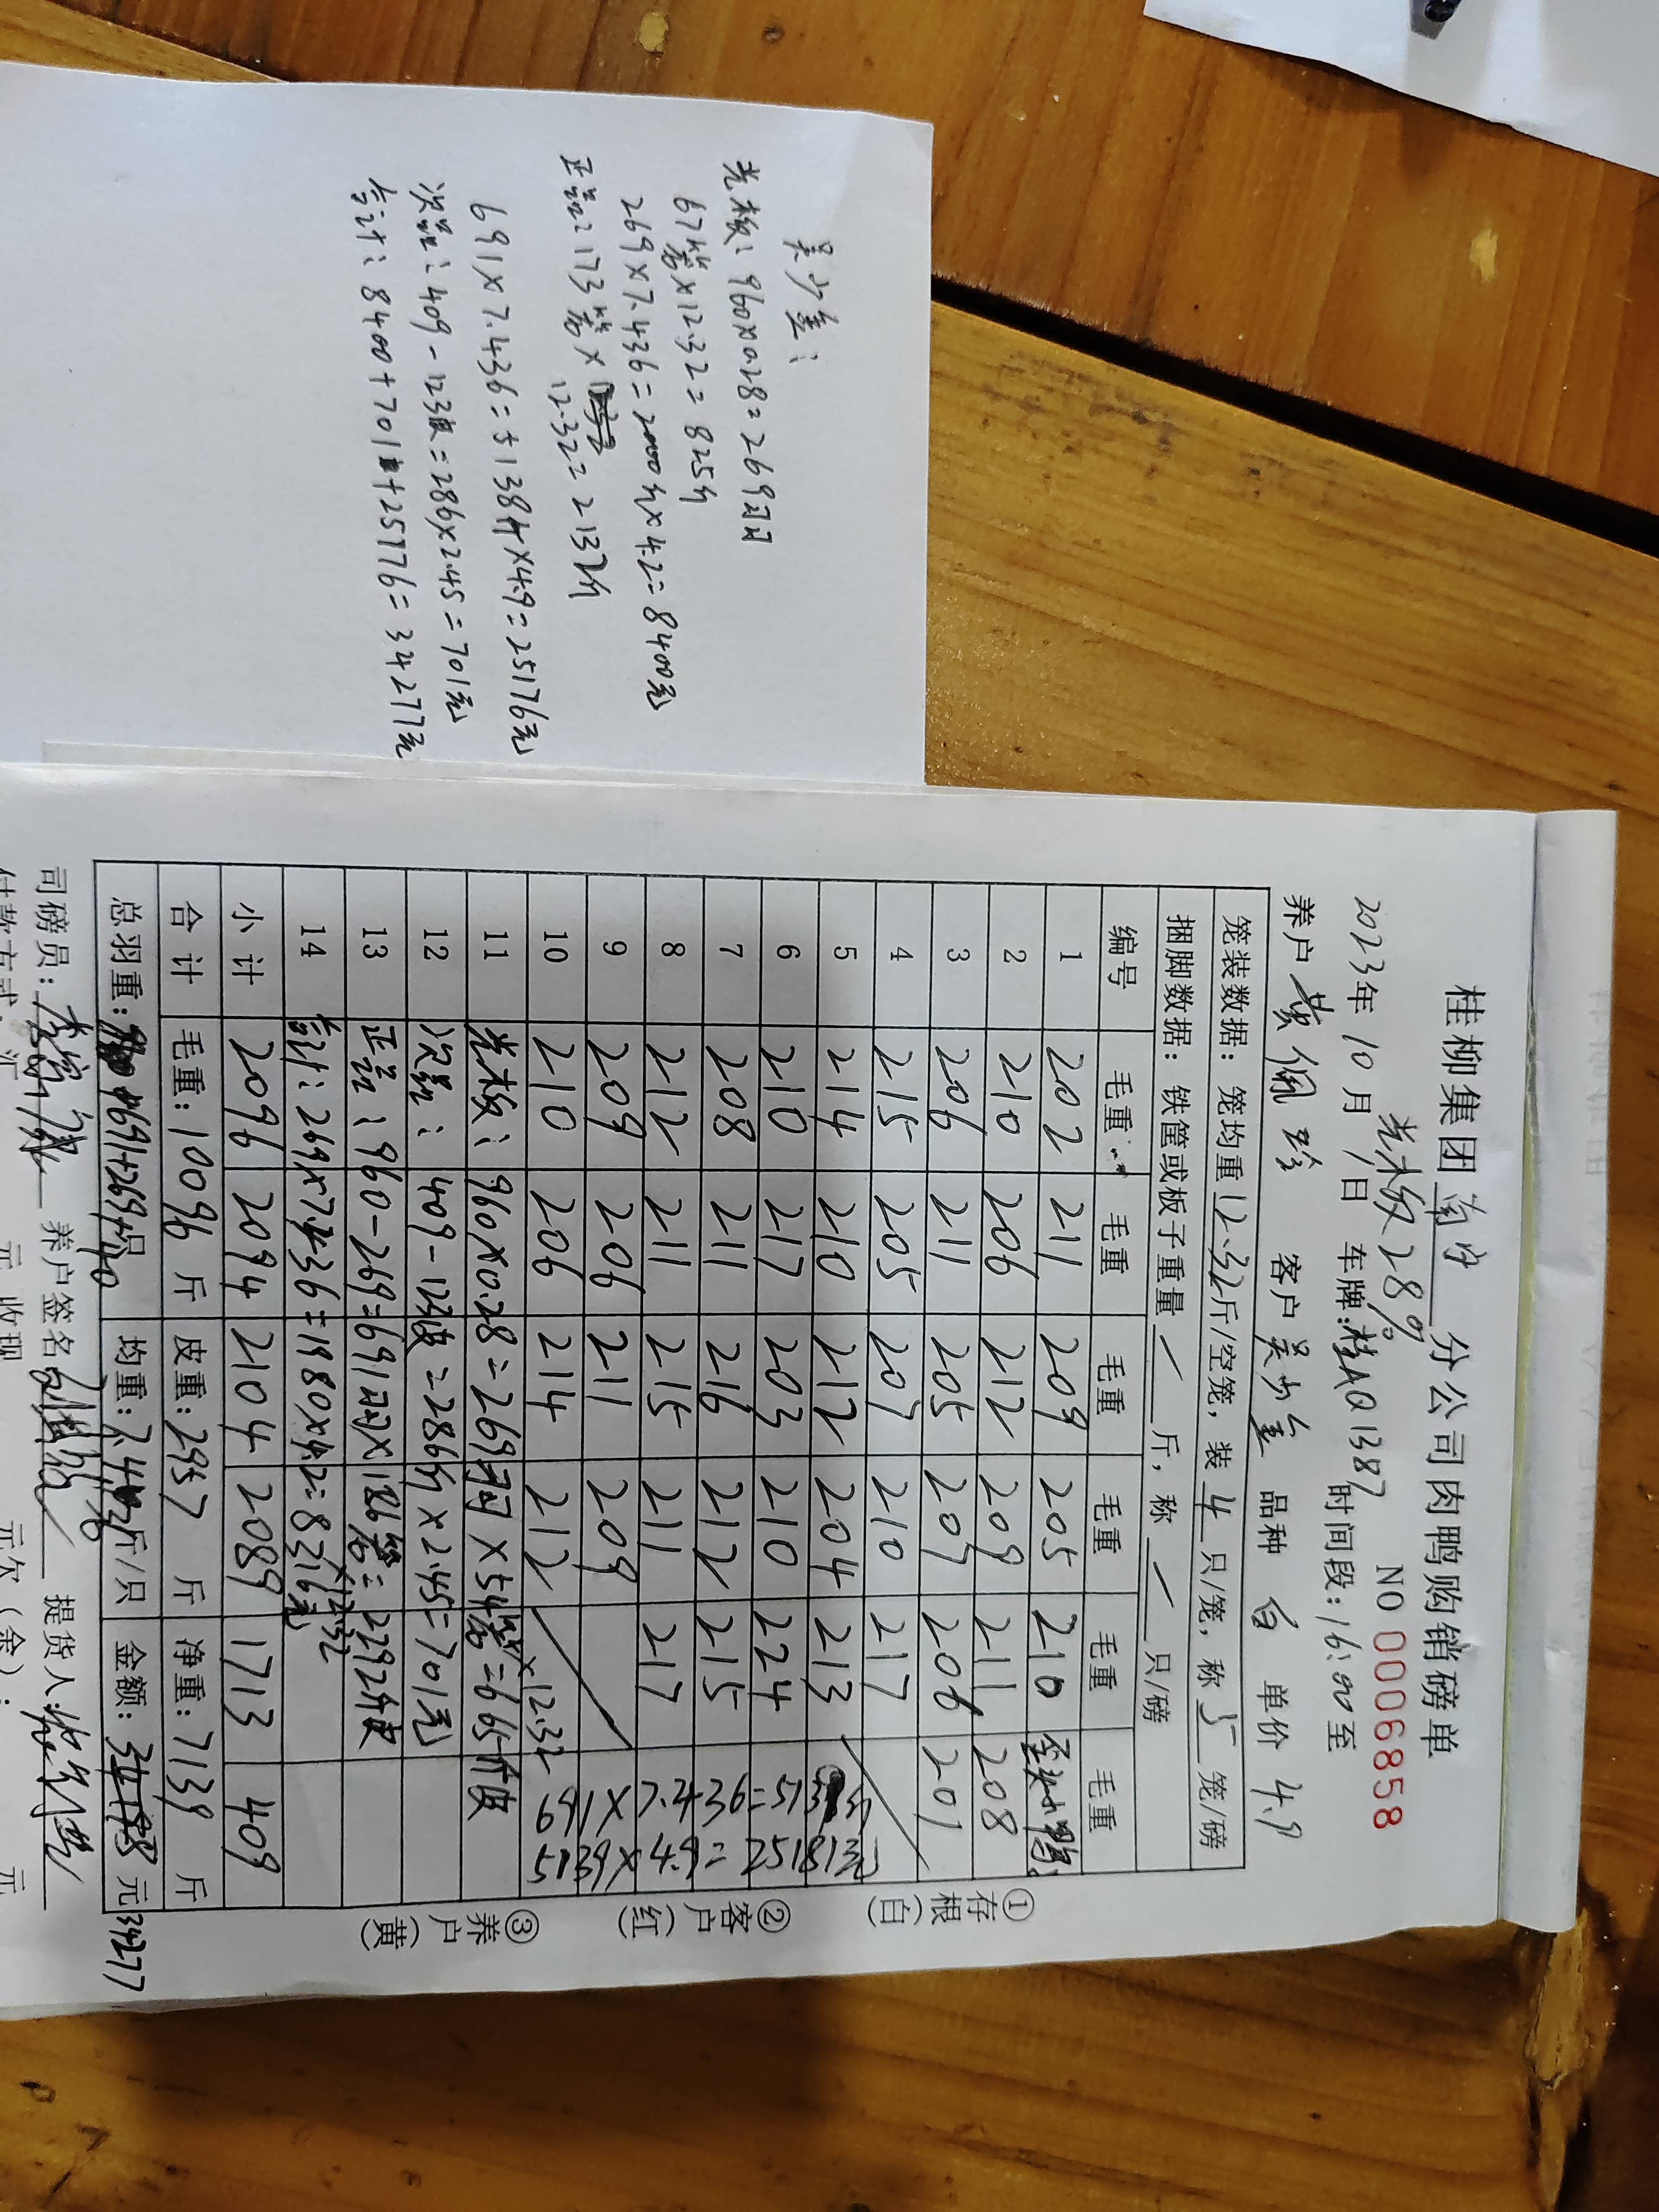 吴少金:
光板: 960×0.28=269只
67笼×12.32=825斤
269×7.436=2000斤×4.2=8400元
正品: 173笼×
12.32=2132斤
691×7.436=5138斤×4.9=25176元
次品: 409-123皮=286×2.45=701元
合计: 8400+701+25176=34277元
桂柳集团 分公司肉鸭购销磅单
光板28%
NO 0006858
2023年10月1日 车牌:桂AQ1387 时间段:16:00至
养户 黄佩玲 客户 吴少金 品种 白 单价 4.9
笼装数据: 笼均重12.32斤/空笼, 装4只/笼, 称5笼/磅
捆脚数据: 铁筐或板子重量/斤, 称/只/磅
编号 毛重 毛重 毛重 毛重 毛重 毛重
1 202 211 209 205 210 歪头小鸭:
2 210 206 212 209 211 208
3 206 211 205 207 206 201
4 215 205 207 210 217
5 214 210 212 204 213
6 210 217 203 210 224
7 208 211 216 212 215
8 212 211 215 211 217
9 209 206 211 209
10 210 206 214 212
691×7.436=513
5139×4.9=25181元
11 光板: 960×0.28=269只×54笼×12.32=665斤皮
12 次品: 409-123皮=286斤×2.45=701元
13 正品: 960-269=691只×186笼×12.32=2292斤皮
14 合计: 269×7.436=1980×4.2=8316元
小计 2096 2094 2104 2089 1713 409
合计 毛重:10096 斤 皮重:2957 斤 净重:7139 斤
总羽重: 691+269+40 只 均重:7.436 斤/只 金额: 元 34277
司磅员: 养户签名 提货人:
付款方式: 汇 元 收现 元欠(余): 元
①存根(白)
②客户(红)
③养户(黄)